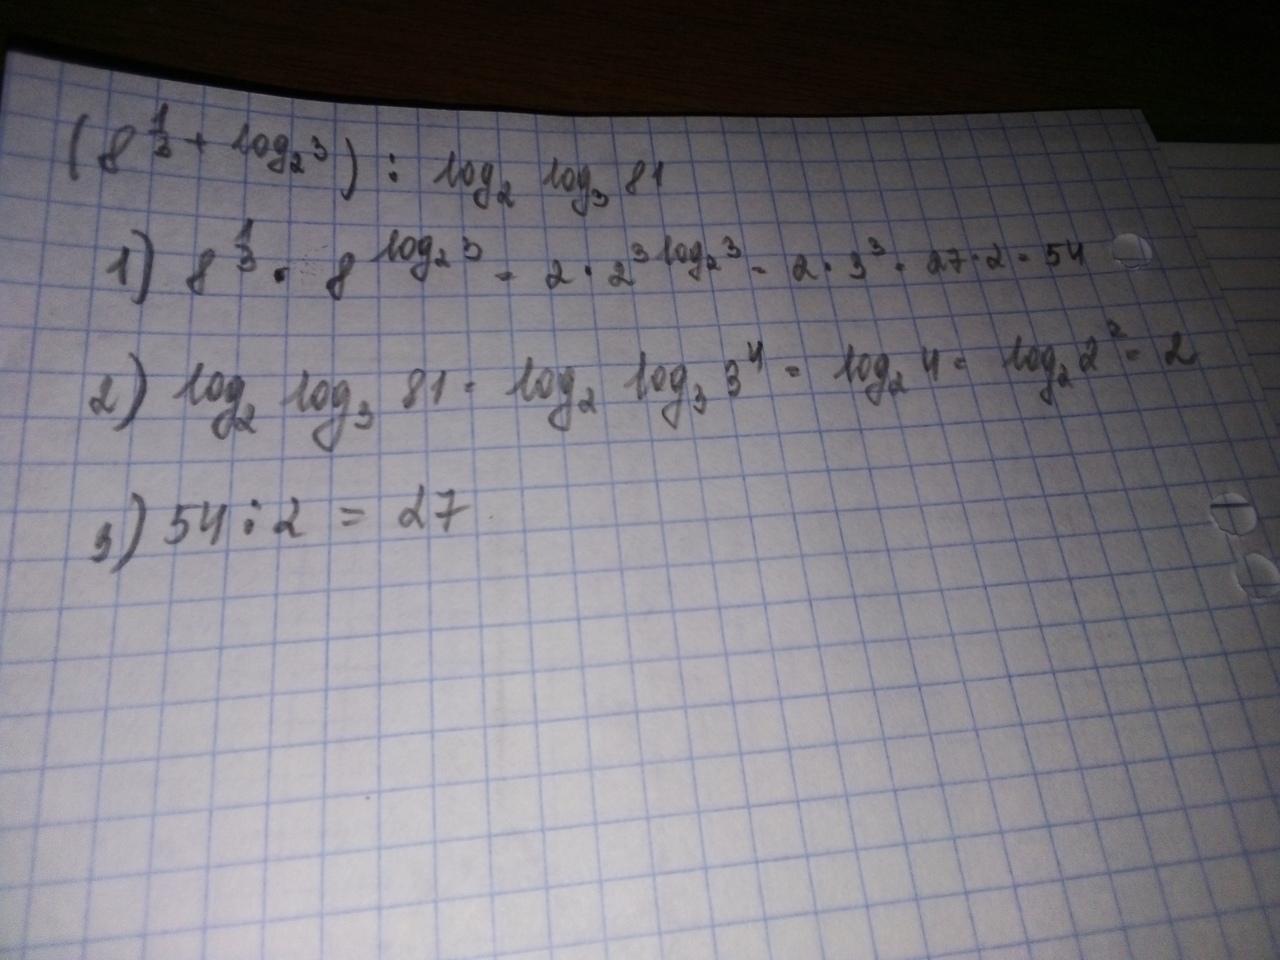 (8^{1/3 + log₂3}) : log₂ log₃ 81
1) 8^{1/3} · 8^{log₂3} = 2 · 2^{3 log₂3} = 2 · 3³ = 27 · 2 = 54
2) log₂ log₃ 81 = log₂ log₃ 3⁴ = log₂ 4 = log₂ 2² = 2
3) 54 : 2 = 27